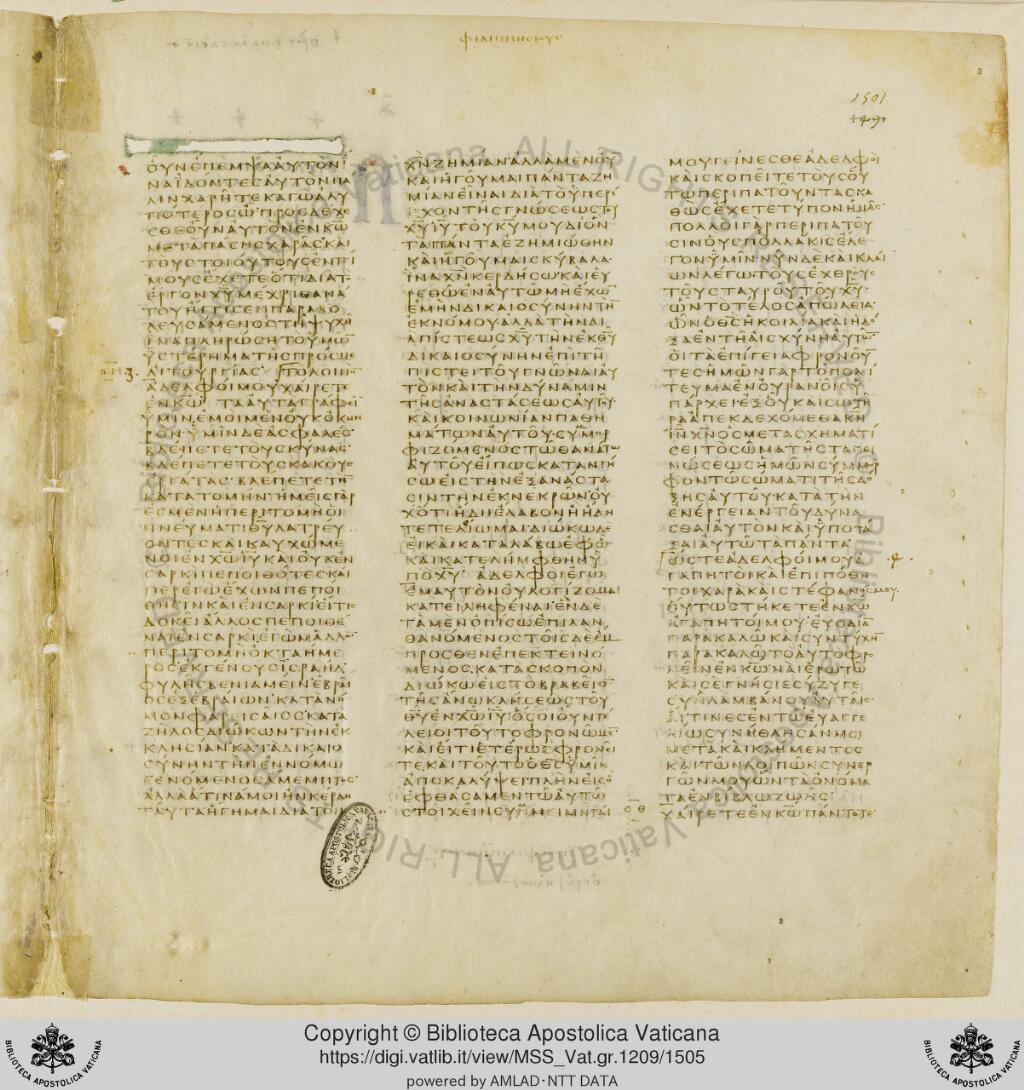 ΦΙΛΙΠΠΗϹΙΟΥϹ
1501
ΟΥΝΕΠΕΜΨΑΑΥΤΟΝΙ
ΝΑΙΔΟΝΤΕϹΑΥΤΟΝΠΑ
ΛΙΝΧΑΡΗΤΕΚΑΓΩΑΛΥ
ΠΟΤΕΡΟϹΩΠΡΟϹΔΕΧΕ
ϹΘΕΟΥΝΑΥΤΟΝΕΝΚΩ
ΜΕΤΑΠΑϹΗϹΧΑΡΑϹΚΑΙ
ΤΟΥϹΤΟΙΟΥΤΟΥϹΕΝΤΙ
ΜΟΥϹΕΧΕΤΕΟΤΙΔΙΑΤ
ΕΡΓΟΝΧΥΜΕΧΡΙΘΑΝΑ
ΤΟΥΗΓΓΙϹΕΝΠΑΡΑΒΟ
ΛΕΥϹΑΜΕΝΟϹΤΗΨΥΧΗ
ΙΝΑΠΛΗΡΩϹΗΤΟΥΜΩ
ΥϹΤΕΡΗΜΑΤΗϹΠΡΟϹΜΕ
ΛΙΤΟΥΡΓΙΑϹ ΤΟΛΟΙΠΟ
ΑΔΕΛΦΟΙΜΟΥΧΑΙΡΕΤΕ
ΕΝΚΩ ΤΑΑΥΤΑΓΡΑΦΕΙ
ΥΜΙΝΕΜΟΙΜΕΝΟΥΚΟΚΝΗ
ΡΟΝΥΜΙΝΔΕΑϹΦΑΛΕϹ
ΒΛΕΠΕΤΕΤΟΥϹΚΥΝΑϹ
ΒΛΕΠΕΤΕΤΟΥϹΚΑΚΟΥϹ
ΕΡΓΑΤΑϹΒΛΕΠΕΤΕΤΗ
ΚΑΤΑΤΟΜΗΝΗΜΕΙϹΓΑΡ
ΕϹΜΕΝΗΠΕΡΙΤΟΜΗΟΙ
ΠΝΕΥΜΑΤΙΘΥΛΑΤΡΕΥ
ΟΝΤΕϹΚΑΙΚΑΥΧΩΜΕ
ΝΟΙΕΝΧΩΙΥΚΑΙΟΥΚΕΝ
ϹΑΡΚΙΠΕΠΟΙΘΟΤΕϹΚΑΙ
ΠΕΡΕΓΩΕΧΩΝΠΕΠΟΙ
ΘΗϹΙΝΚΑΙΕΝϹΑΡΚΙΕΙΤΙϹ
ΔΟΚΕΙΑΛΛΟϹΠΕΠΟΙΘΕ
ΝΑΙΕΝϹΑΡΚΙΕΓΩΜΑΛΛΟ
ΠΕΡΙΤΟΜΗΟΚΤΑΗΜΕ
ΡΟϹΕΚΓΕΝΟΥϹΙϹΡΑΗΛ
ΦΥΛΗϹΒΕΝΙΑΜΕΙΝΕΒΡΑΙ
ΟϹΕΞΕΒΡΑΙΩΝΚΑΤΑΝΟ
ΜΟΝΦΑΡΕΙϹΑΙΟϹΚΑΤΑ
ΖΗΛΟϹΔΙΩΚΩΝΤΗΝΕΚ
ΚΛΗϹΙΑΝΚΑΤΑΔΙΚΑΙΟ
ϹΥΝΗΝΤΗΝΕΝΝΟΜΩ
ΓΕΝΟΜΕΝΟϹΑΜΕΜΠΤΟϹ
ΑΛΛΑΑΤΙΝΑΜΟΙΗΝΚΕΡΔΗ
ΤΑΥΤΑΗΓΗΜΑΙΔΙΑΤΟΝ
ΧΝΖΗΜΙΑΝΑΛΛΑΜΕΝΟΥ
ΚΑΙΗΓΟΥΜΑΙΠΑΝΤΑΖΗ
ΜΙΑΝΕΙΝΑΙΔΙΑΤΟΥΠΕΡΕ
ΧΟΝΤΗϹΓΝΩϹΕΩϹΤΟΥ
ΧΥΙΥΤΟΥΚΥΜΟΥΔΙΟΝ
ΤΑΠΑΝΤΑΕΖΗΜΙΩΘΗΝ
ΚΑΙΗΓΟΥΜΑΙϹΚΥΒΑΛΑ
ΙΝΑΧΝΚΕΡΔΗϹΩΚΑΙΕΥ
ΡΕΘΩΕΝΑΥΤΩΜΗΕΧΩ
ΕΜΗΝΔΙΚΑΙΟϹΥΝΗΝΤΗ
ΕΚΝΟΜΟΥΑΛΛΑΤΗΝΔΙ
ΑΠΙϹΤΕΩϹΧΥΤΗΝΕΚΘΥ
ΔΙΚΑΙΟϹΥΝΗΝΕΠΙΤΗ
ΠΙϹΤΕΙΤΟΥΓΝΩΝΑΙΑΥ
ΤΟΝΚΑΙΤΗΝΔΥΝΑΜΙΝ
ΤΗϹΑΝΑϹΤΑϹΕΩϹΑΥΤΟΥ
ΚΑΙΚΟΙΝΩΝΙΑΝΠΑΘΗ
ΜΑΤΩΝΑΥΤΟΥϹΥΜΜΟΡ
ΦΙΖΟΜΕΝΟϹΤΩΘΑΝΑΤΩ
ΑΥΤΟΥΕΙΠΩϹΚΑΤΑΝΤΗ
ϹΩΕΙϹΤΗΝΕΞΑΝΑϹΤΑ
ϹΙΝΤΗΝΕΚΝΕΚΡΩΝΟΥ
ΧΟΤΙΗΔΗΕΛΑΒΟΝΗΗΔΗ
ΤΕΤΕΛΕΙΩΜΑΙΔΙΩΚΩΔΕ
ΕΙΚΑΙΚΑΤΑΛΑΒΩΕΦΩ
ΚΑΙΚΑΤΕΛΗΜΦΘΗΝΥ
ΠΟΧΥ ΑΔΕΛΦΟΙΕΓΩ
ΕΜΑΥΤΟΝΟΥΛΟΓΙΖΟΜΑΙ
ΚΑΤΕΙΛΗΦΕΝΑΙΕΝΔΕ
ΤΑΜΕΝΟΠΙϹΩΕΠΙΛΑΝ
ΘΑΝΟΜΕΝΟϹΤΟΙϹΔΕΕΜ
ΠΡΟϹΘΕΝΕΠΕΚΤΕΙΝΟ
ΜΕΝΟϹΚΑΤΑϹΚΟΠΟΝ
ΔΙΩΚΩΕΙϹΤΟΒΡΑΒΕΙΟ
ΤΗϹΑΝΩΚΛΗϹΕΩϹΤΟΥ
ΘΥΕΝΧΩΙΥΟϹΟΙΟΥΝΤΕ
ΛΕΙΟΙΤΟΥΤΟΦΡΟΝΩΜΕ
ΚΑΙΕΙΤΙΕΤΕΡΩϹΦΡΟΝΕΙ
ΤΕΚΑΙΤΟΥΤΟΘϹΥΜΙΝ
ΑΠΟΚΑΛΥΨΕΙΠΛΗΝΕΙϹΟ
ΕΦΘΑϹΑΜΕΝΤΩΑΥΤΩ
ϹΤΟΙΧΕΙΝϹΥΝΜΕΙΜΗΤΑΙ
ΜΟΥΓΕΙΝΕϹΘΕΑΔΕΛΦΟΙ
ΚΑΙϹΚΟΠΕΙΤΕΤΟΥϹΟΥ
ΤΩΠΕΡΙΠΑΤΟΥΝΤΑϹΚΑ
ΘΩϹΕΧΕΤΕΤΥΠΟΝΗΜΑϹ
ΠΟΛΛΟΙΓΑΡΠΕΡΙΠΑΤΟΥ
ϹΙΝΟΥϹΠΟΛΛΑΚΙϹΕΛΕ
ΓΟΝΥΜΙΝΝΥΝΔΕΚΑΙΚΛΑΙ
ΩΝΛΕΓΩΤΟΥϹΕΧΘΡΟΥϹ
ΤΟΥϹΤΑΥΡΟΥΤΟΥΧΥ
ΩΝΤΟΤΕΛΟϹΑΠΩΛΕΙΑ
ΩΝΟΘϹΗΚΟΙΛΙΑΚΑΙΗΔΟ
ΞΑΕΝΤΗΑΙϹΧΥΝΗΑΥΤΩ
ΟΙΤΑΕΠΙΓΕΙΑΦΡΟΝΟΥ
ΤΕϹΗΜΩΝΓΑΡΤΟΠΟΛΙ
ΤΕΥΜΑΕΝΟΥΡΑΝΟΙϹΥ
ΠΑΡΧΕΙΕΞΟΥΚΑΙϹΩΤΗ
ΡΑΑΠΕΚΔΕΧΟΜΕΘΑΚΝ
ΙΝΧΝΟϹΜΕΤΑϹΧΗΜΑΤΙ
ϹΕΙΤΟϹΩΜΑΤΗϹΤΑΠΕΙ
ΝΩϹΕΩϹΗΜΩΝϹΥΜΜΟΡ
ΦΟΝΤΩϹΩΜΑΤΙΤΗϹΔΟ
ΞΗϹΑΥΤΟΥΚΑΤΑΤΗΝ
ΕΝΕΡΓΕΙΑΝΤΟΥΔΥΝΑ
ϹΘΑΙΑΥΤΟΝΚΑΙΥΠΟΤΑ
ΞΑΙΑΥΤΩΤΑΠΑΝΤΑ
ΩϹΤΕΑΔΕΛΦΟΙΜΟΥΑ
ΓΑΠΗΤΟΙΚΑΙΕΠΙΠΟΘΗ
ΤΟΙΧΑΡΑΚΑΙϹΤΕΦΑΝΕΜΟΥ
ΟΥΤΩϹΤΗΚΕΤΕΕΝΚΩ
ΑΓΑΠΗΤΟΙΜΟΥΕΥΟΔΙΑ
ΠΑΡΑΚΑΛΩΚΑΙϹΥΝΤΥΧΗ
ΠΑΡΑΚΑΛΩΤΟΑΥΤΟΦΡΟ
ΝΕΙΝΕΝΚΩΝΑΙΕΡΩΤΩ
ΚΑΙϹΕΓΝΗϹΙΕϹΥΖΥΓΕ
ϹΥΝΛΑΜΒΑΝΟΥΑΥΤΑΙϹ
ΑΙΤΙΝΕϹΕΝΤΩΕΥΑΓΓΕ
ΛΙΩϹΥΝΗΘΛΗϹΑΝΜΟΙ
ΜΕΤΑΚΑΙΚΛΗΜΕΝΤΟϹ
ΚΑΙΤΩΝΛΟΙΠΩΝϹΥΝΕΡ
ΓΩΝΜΟΥΩΝΤΑΟΝΟΜΑ
ΤΑΕΝΒΙΒΛΩΖΩΗϹ
ΧΑΙΡΕΤΕΕΝΚΩΠΑΝΤΟΤΕ
Copyright © Biblioteca Apostolica Vaticana
https://digi.vatlib.it/view/MSS_Vat.gr.1209/1505
powered by AMLAD·NTT DATA
BIBLIOTECA APOSTOLICA VATICANA
BIBLIOTECA APOSTOLICA VATICANA